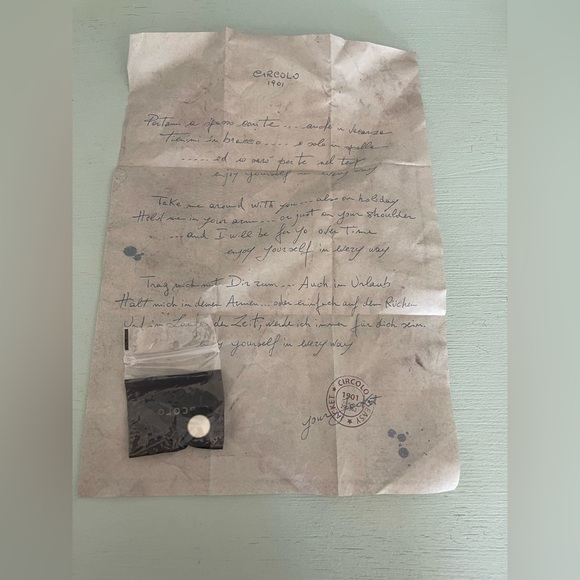 CIRCOLO
1901
Portami a spasso con te.... anche in vacanza
Tienimi in braccio ..... o solo in spalla
...... ed io sarò per te nel tempo
enjoy yourself in every way
Take me around with you... also on holiday
Hold me in your arm.... or just on your shoulder
... and I will be for you over Time
enjoy yourself in every way
Trag mich mit Dir rum... Auch im Urlaub
Halt mich in deinen Armen... oder einfach auf dem Rücken
Und im Laufe der Zeit, werde ich immer für dich sein.
yourself in every way
your
CIRCOLO
1901
EASY JACKET